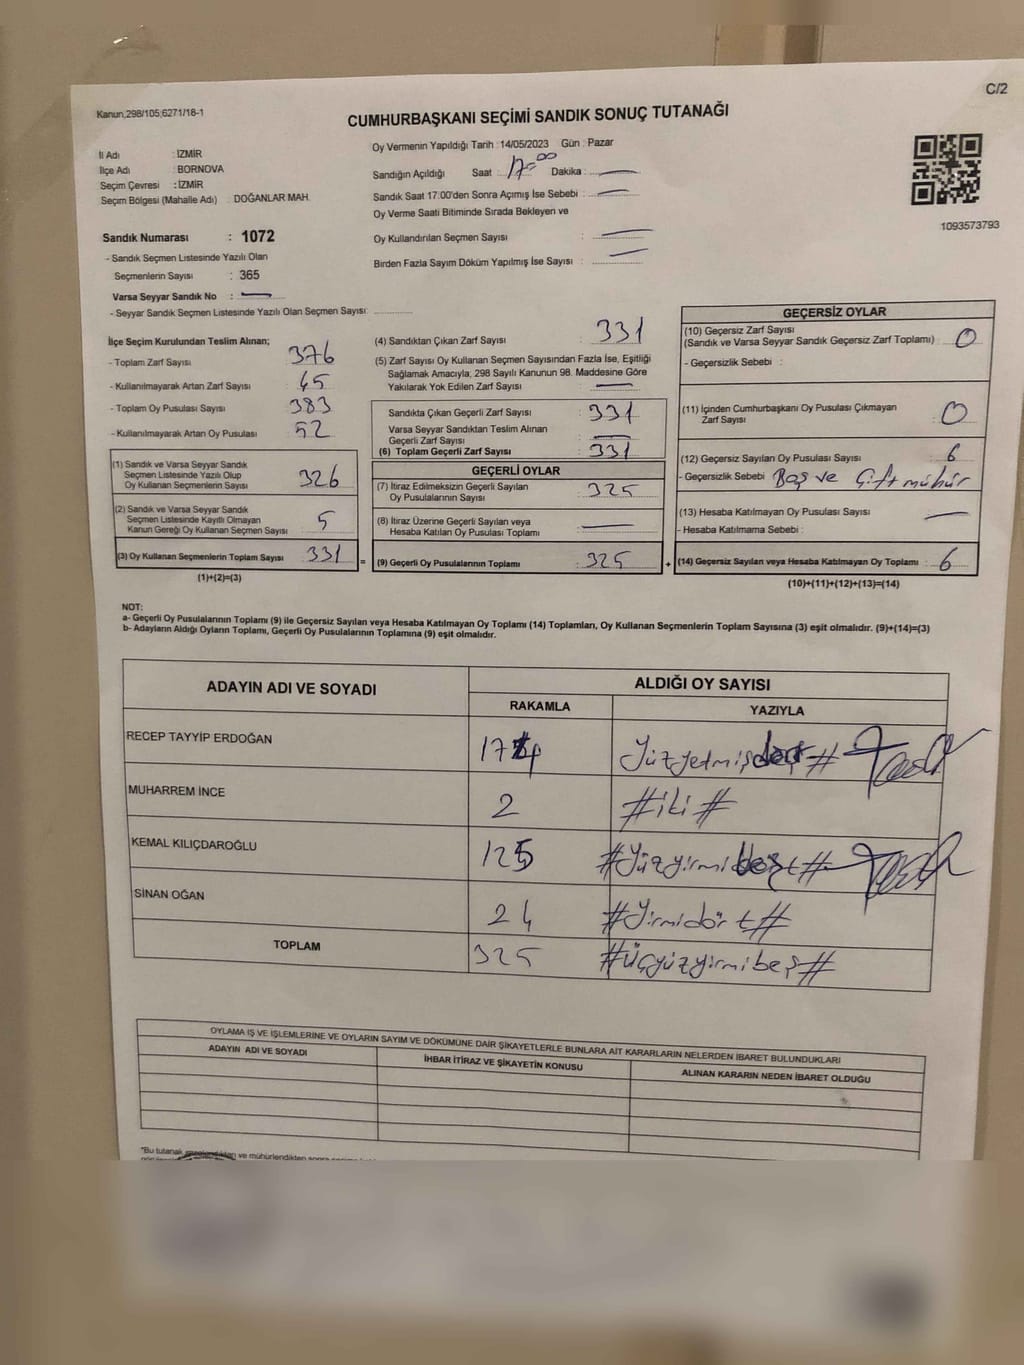 Kanun,298/105;6271/18-1
C/2
CUMHURBAŞKANI SEÇİMİ SANDIK SONUÇ TUTANAĞI
İl Adı : İZMİR
İlçe Adı : BORNOVA
Seçim Çevresi : İZMİR
Seçim Bölgesi (Mahalle Adı) : DOĞANLAR MAH.
Oy Vermenin Yapıldığı Tarih : 14/05/2023 Gün : Pazar
Sandığın Açıldığı Saat : 17:00 Dakika : —
Sandık Saat 17:00'den Sonra Açımış İse Sebebi : —
Oy Verme Saati Bitiminde Sırada Bekleyen ve
Oy Kullandırılan Seçmen Sayısı : —
Birden Fazla Sayım Döküm Yapılmış İse Sayısı : —
1093573793
Sandık Numarası : 1072
- Sandık Seçmen Listesinde Yazılı Olan
Seçmenlerin Sayısı : 365
Varsa Seyyar Sandık No : —
- Seyyar Sandık Seçmen Listesinde Yazılı Olan Seçmen Sayısı:
İlçe Seçim Kurulundan Teslim Alınan;
- Toplam Zarf Sayısı : 376
- Kullanılmayarak Artan Zarf Sayısı : 45
- Toplam Oy Pusulası Sayısı : 383
- Kullanılmayarak Artan Oy Pusulası : 52
(1) Sandık ve Varsa Seyyar Sandık
Seçmen Listesinde Yazılı Olup
Oy Kullanan Seçmenlerin Sayısı : 326
(2) Sandık ve Varsa Seyyar Sandık
Seçmen Listesinde Kayıtlı Olmayan
Kanun Gereği Oy Kullanan Seçmen Sayısı : 5
(3) Oy Kullanan Seçmenlerin Toplam Sayısı : 331
(1)+(2)=(3)
(4) Sandıktan Çıkan Zarf Sayısı : 331
(5) Zarf Sayısı Oy Kullanan Seçmen Sayısından Fazla İse, Eşitliği
Sağlamak Amacıyla; 298 Sayılı Kanunun 98. Maddesine Göre
Yakılarak Yok Edilen Zarf Sayısı : —
Sandıkta Çıkan Geçerli Zarf Sayısı : 331
Varsa Seyyar Sandıktan Teslim Alınan
Geçerli Zarf Sayısı : —
(6) Toplam Geçerli Zarf Sayısı : 331
GEÇERLİ OYLAR
(7) İtiraz Edilmeksizin Geçerli Sayılan
Oy Pusulalarının Sayısı : 325
(8) İtiraz Üzerine Geçerli Sayılan veya
Hesaba Katılan Oy Pusulası Toplamı : —
= (9) Geçerli Oy Pusulalarının Toplamı : 325 +
GEÇERSİZ OYLAR
(10) Geçersiz Zarf Sayısı
(Sandık ve Varsa Seyyar Sandık Geçersiz Zarf Toplamı) : 0
- Geçersizlik Sebebi :
(11) İçinden Cumhurbaşkanı Oy Pusulası Çıkmayan
Zarf Sayısı : 0
(12) Geçersiz Sayılan Oy Pusulası Sayısı : 6
- Geçersizlik Sebebi : Boş ve Çift mühür
(13) Hesaba Katılmayan Oy Pusulası Sayısı : —
- Hesaba Katılmama Sebebi :
(14) Geçersiz Sayılan veya Hesaba Katılmayan Oy Toplamı : 6
(10)+(11)+(12)+(13)=(14)
NOT:
a- Geçerli Oy Pusulalarının Toplamı (9) ile Geçersiz Sayılan veya Hesaba Katılmayan Oy Toplamı (14) Toplamları, Oy Kullanan Seçmenlerin Toplam Sayısına (3) eşit olmalıdır. (9)+(14)=(3)
b- Adayların Aldığı Oyların Toplamı, Geçerli Oy Pusulalarının Toplamına (9) eşit olmalıdır.
ADAYIN ADI VE SOYADI ALDIĞI OY SAYISI
RAKAMLA YAZIYLA
RECEP TAYYİP ERDOĞAN 174
MUHARREM İNCE 2 #iki#
KEMAL KILIÇDAROĞLU 125
SİNAN OĞAN 24 #Yirmidört#
TOPLAM 325 #üçyüzyirmibeş#
OYLAMA İŞ VE İŞLEMLERİNE VE OYLARIN SAYIM VE DÖKÜMÜNE DAİR ŞİKAYETLERLE BUNLARA AİT KARARLARIN NELERDEN İBARET BULUNDUKLARI
ADAYIN ADI VE SOYADI İHBAR İTİRAZ VE ŞİKAYETİN KONUSU ALINAN KARARIN NEDEN İBARET OLDUĞU
"Bu tutanak ve mühürlendikten sonra